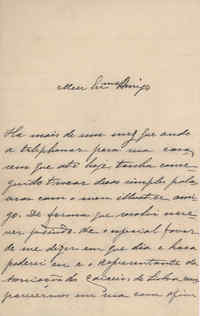 Meu Exmo Amigo
Ha mais de um mez que ando
a telephonar para sua casa
sem que até hoje tenha conse-
guido trocar duas simples pala-
vras com o meu illustre ami-
go. De forma que venho
pedindo-lhe o especial favor
de me dizer em que dia e hora
poderei eu e o representante da
Associação de Lisboa
em sua casa afim